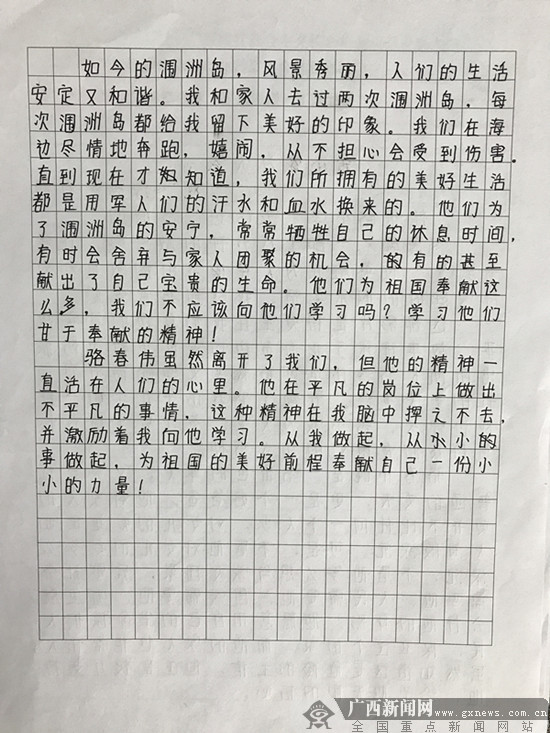 如今的涠洲岛，风景秀丽，人们的生活
安定又和谐。我和家人去过两次涠洲岛，每
次涠洲岛都给我留下美好的印象。我们在海
边尽情地奔跑，嬉闹，从不担心会受到伤害。
直到现在才知道，我们所拥有的美好生活
都是用军人们的汗水和血水换来的。他们为
了涠洲岛的安宁，常常牺牲自己的休息时间，
有时会舍弃与家人团聚的机会，有的甚至
献出了自己宝贵的生命。他们为祖国奉献这
么多，我们不应该向他们学习吗？学习他们
甘于奉献的精神！
骆春伟虽然离开了我们，但他的精神一
直活在人们的心里。他在平凡的岗位上做出
不平凡的事情，这种精神在我脑中挥之不去，
并激励着我向他学习。从我做起，从小小的
事做起，为祖国的美好前程奉献自己一份小
小的力量！
广西新闻网
www.gxnews.com.cn
全国重点新闻网站